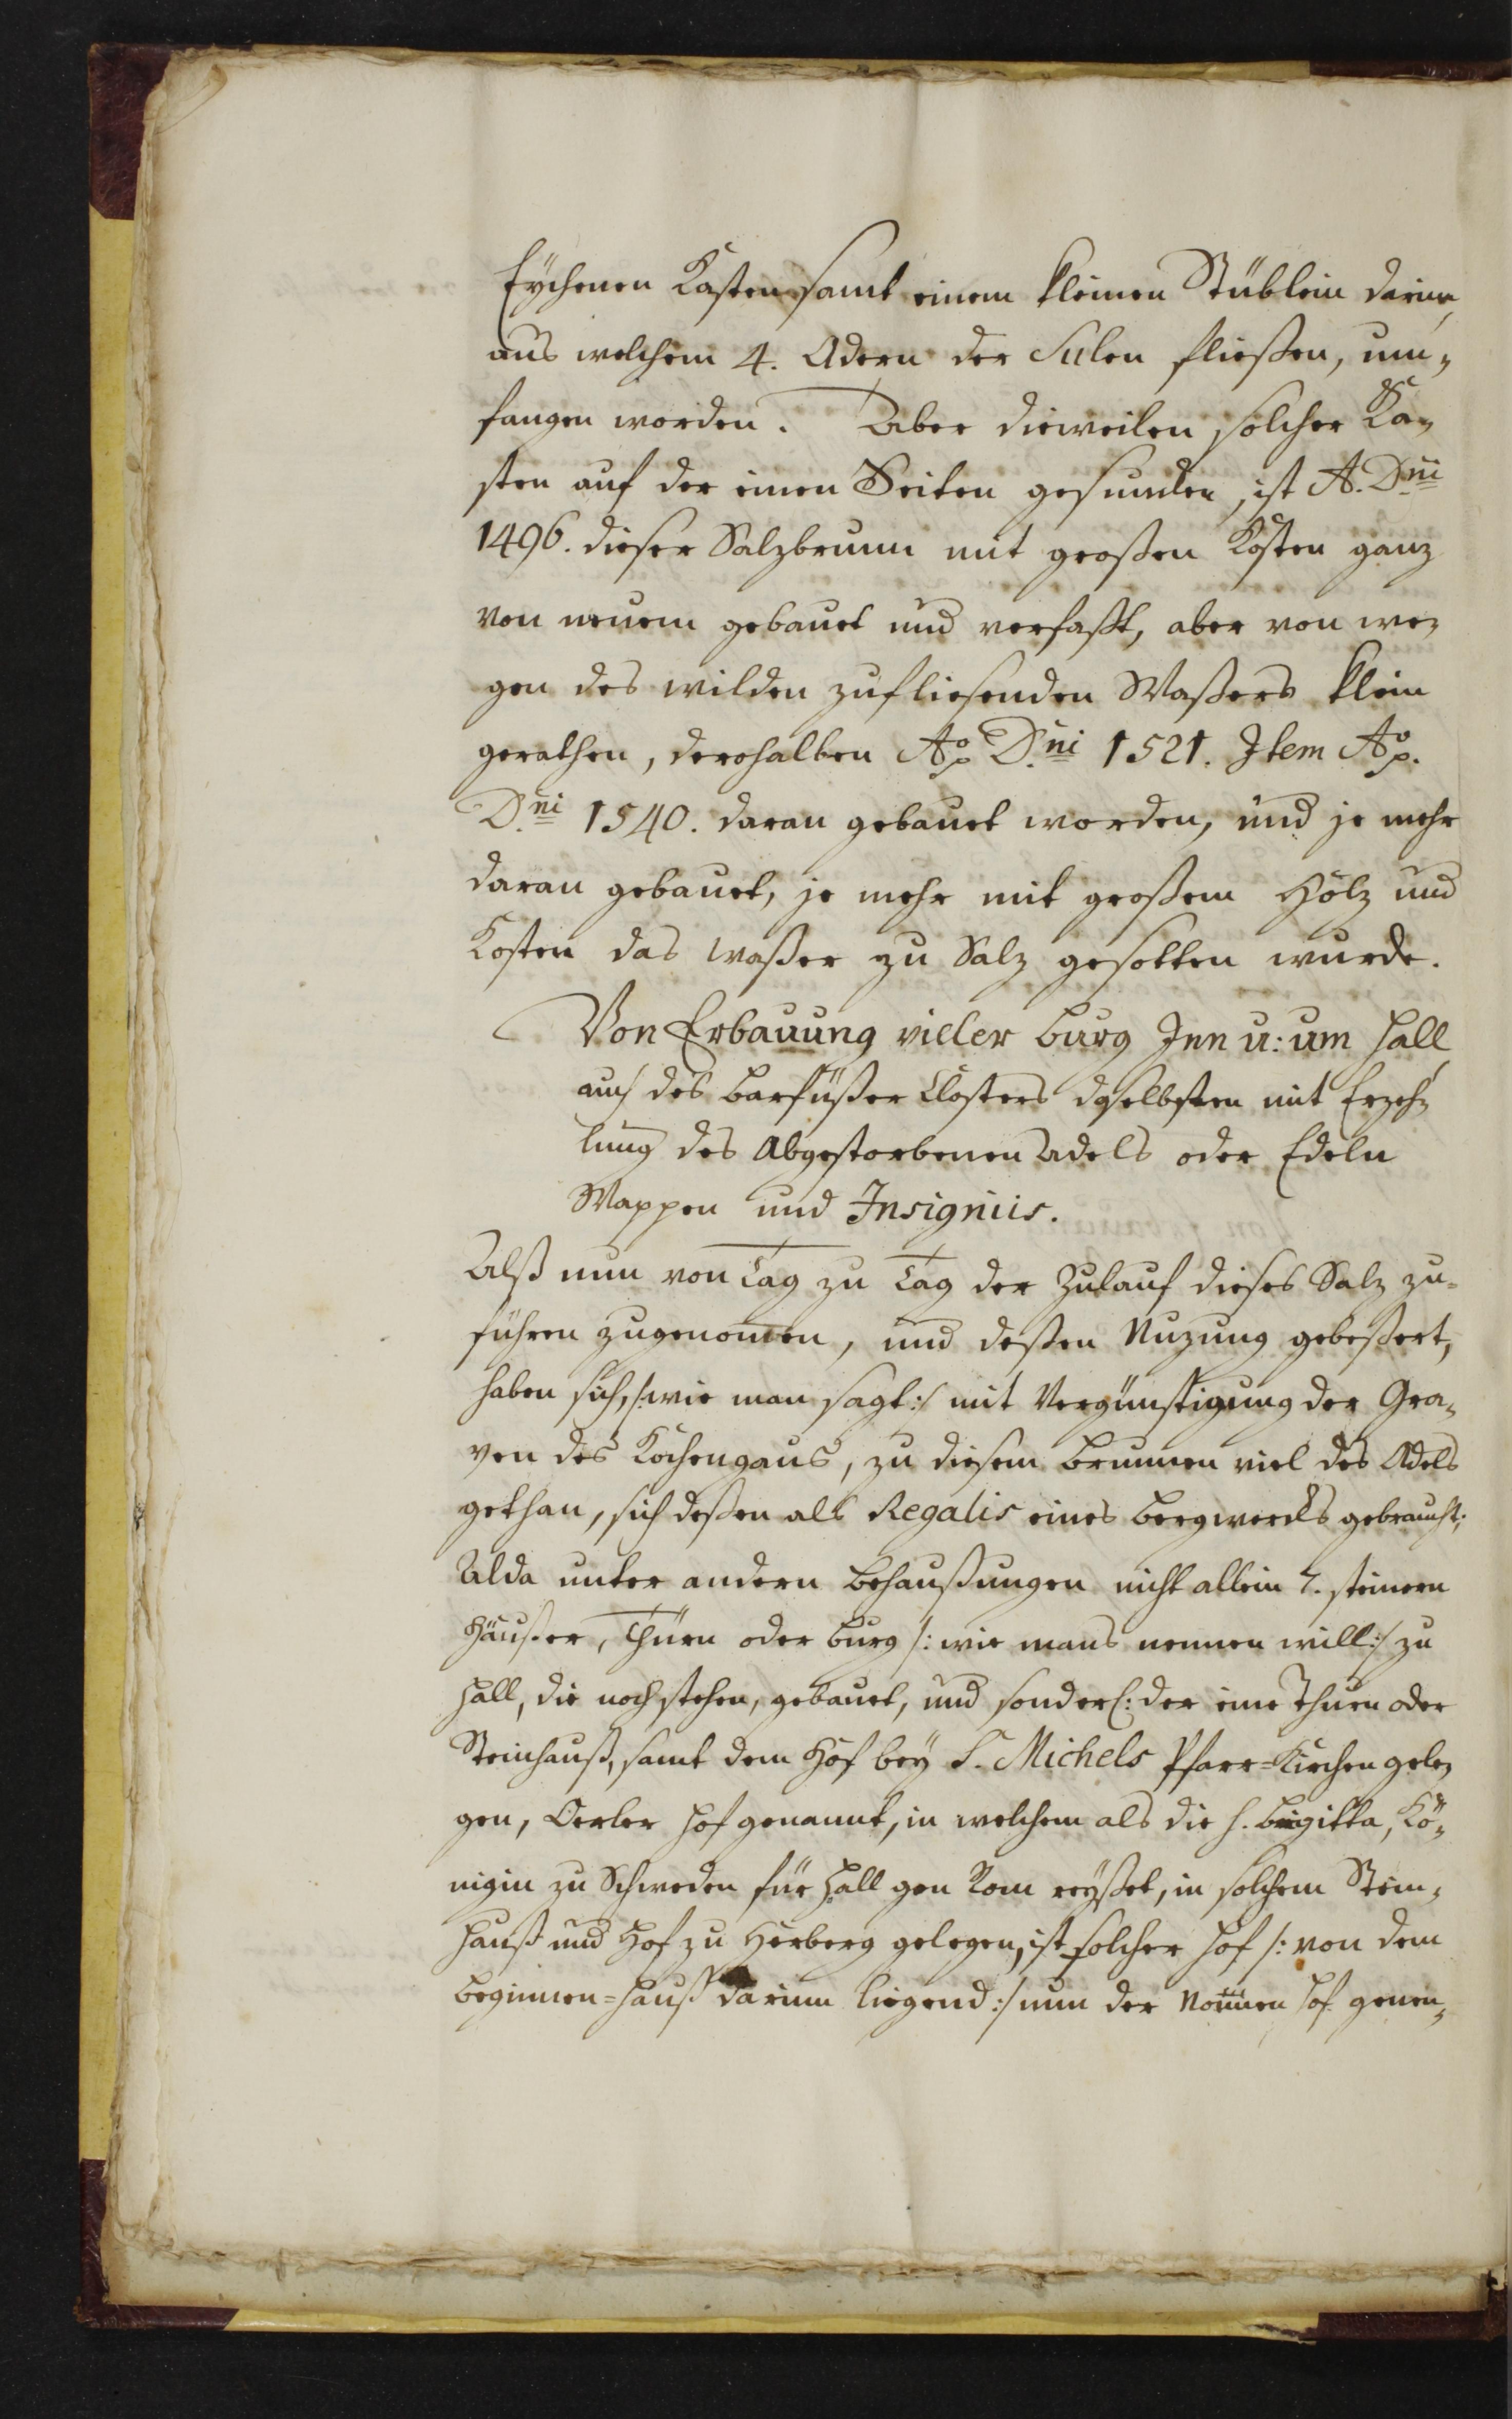 Eychenen Kasten samt einem kleinen Stüblein darinn,
aus welchem 4. Adern der Sulen fließen, um„
fangen worden. Aber dieweilen solcher Ka„
sten auf der einen Seiten gesunden, ist A. Dni
1496. dieser Salzbrunn mit großen Kosten ganz
von neuem gebauet und verfaßt, aber von we„
gen des wilden zufliesenden Waßers klein
gerathen, derohalben Ao. Dni 1521. Item Ao.
Dni 1540. daran gebauet worden, und je mehr
daran gebauet, je mehr mit großem Holz und
Kosten das waßer zu Salz gesotten wurde.
Von Erbauung vieler burg Inn u: um Hall
auch des barfüßer Closters daselbsten mit Erzeh„
lung des Abgestorbenen Adels oder Edeln
Wappen und Insigniis.
Alß nun von Tag zu Tag der Zulauf dieses Salz zu=
führen zugenomen, und deßen Nuzung gebeßert,
haben sich, /:wie man sagt:/ mit Vergünstigung der Gra„
ven des Kochengaus, zu diesem brunnen viel des Adels
gethan, sich deßen als Regalis eines bergwercks gebraucht;
Alda unter andern behaußungen nicht allein 7. steinern
Häußer, Thürn oder burg /: wie mans nennen will:/ zu
Hall, die noch stehen, gebauet, und sonderl: der eine Thurn oder
Steinhauß, samt dem Hof bey S. Michels Pfarr=Kirchen gele„
gen, Oerler Hof genannt, in welchem als die H. brigitta, Kö„
nigin zu Schweden für Hall gen Rom reyßet, in solchem Stein„
hauß und Hof zu Herberg gelegen, ist solcher Hof /: von dem
beginnen=Hauß darinn liegend:/ nun der Nonnen Hof genen„